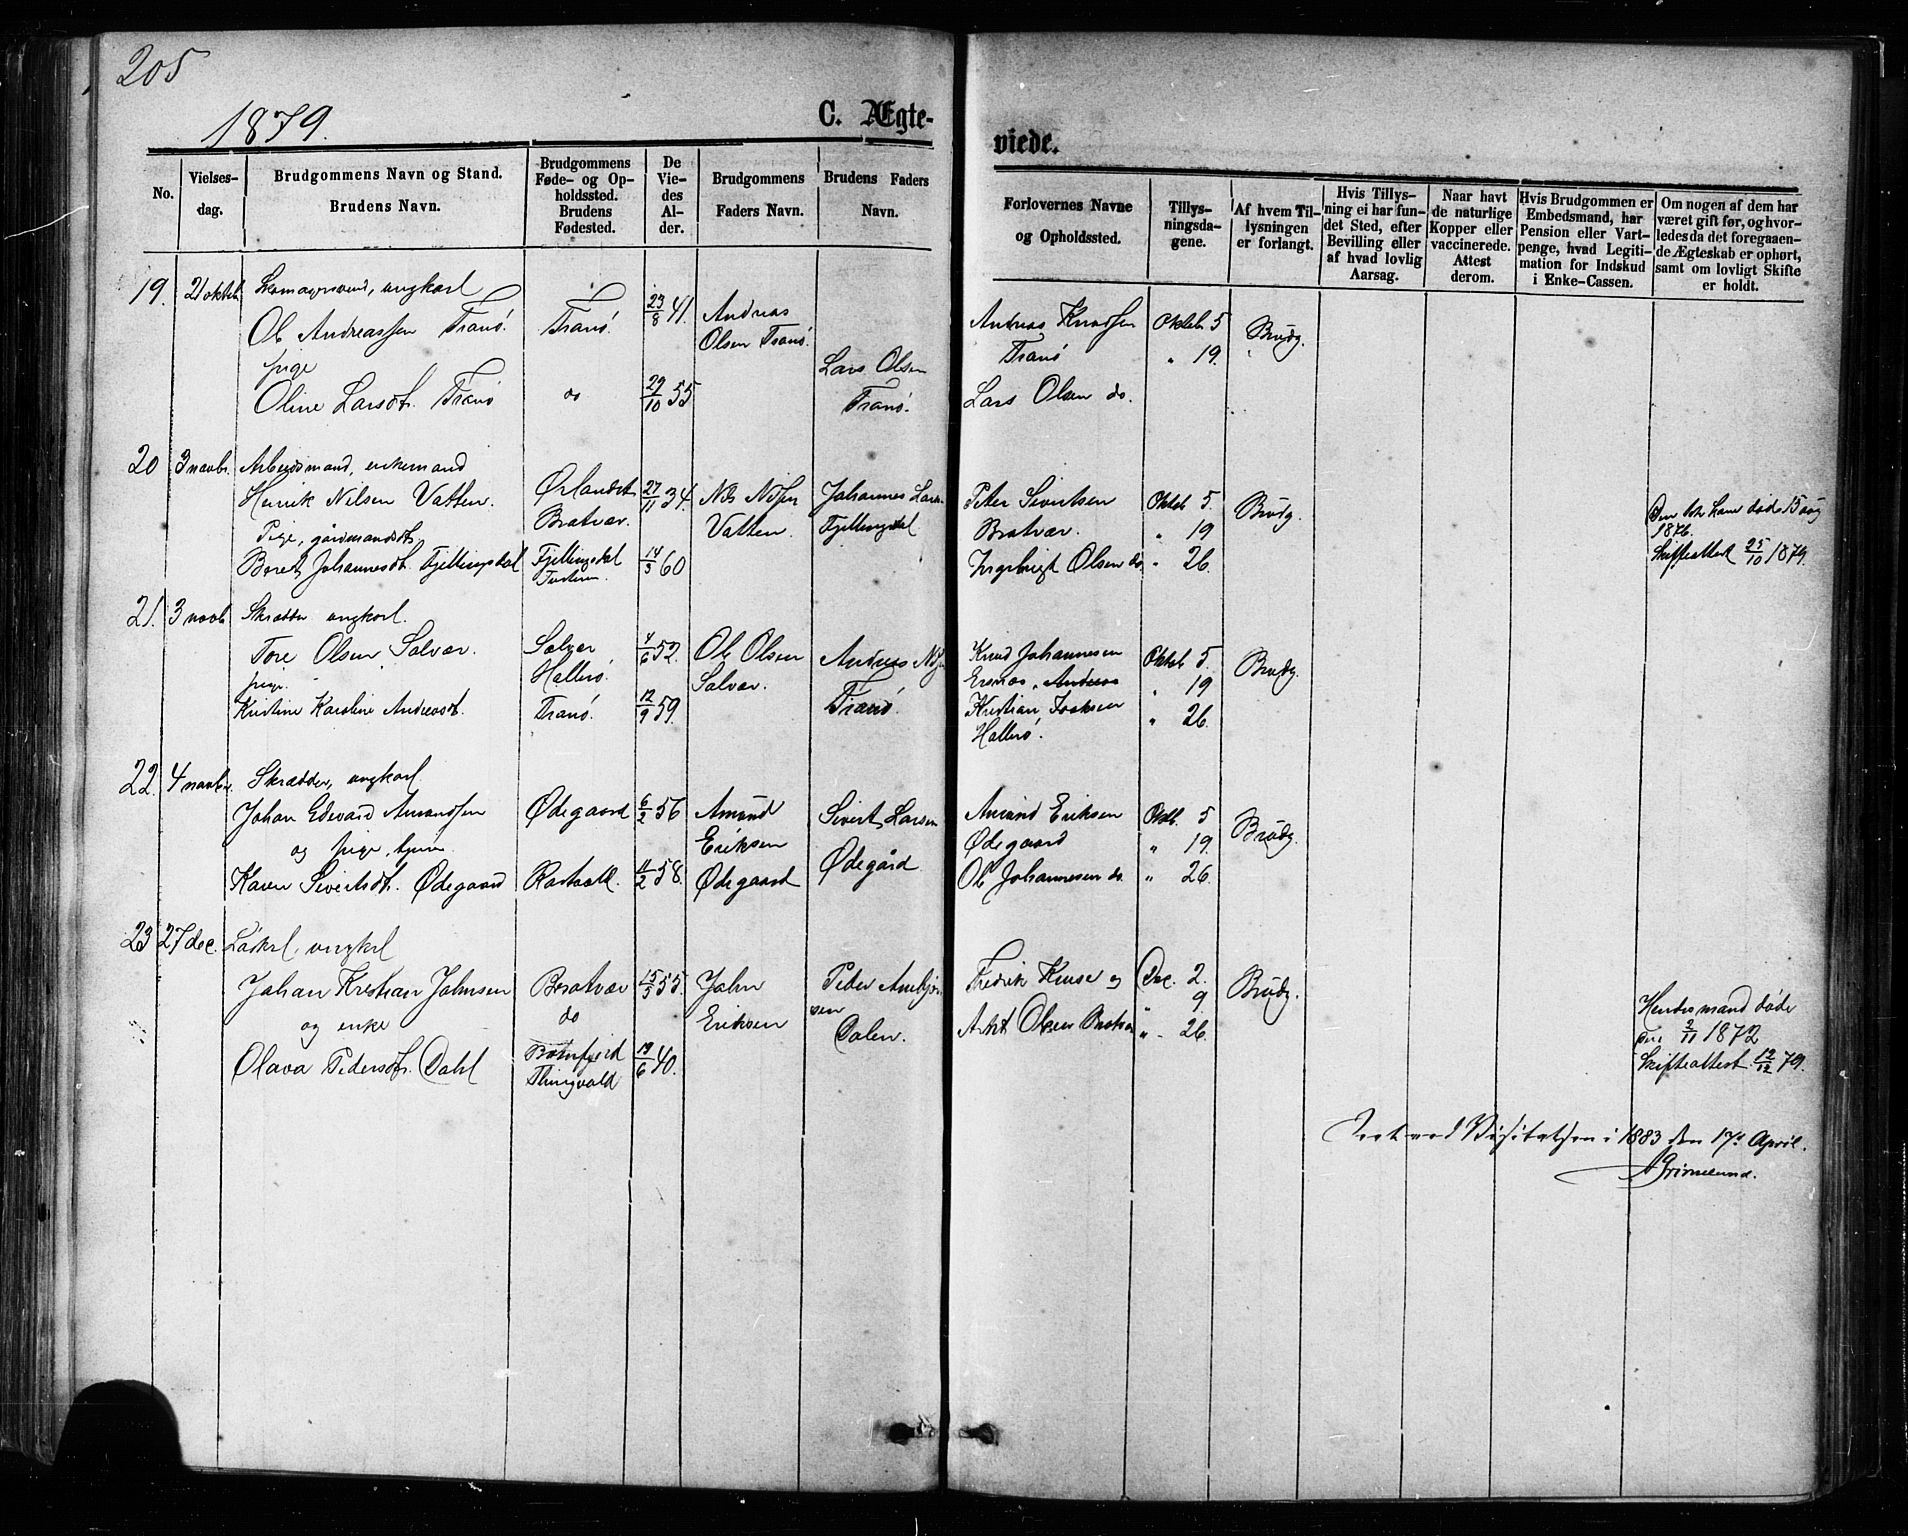 205
1879.
C. Ægte-
viede.
No.
Vielses-
dag.
Brudgommens Navn og Stand.
Brudens Navn.
Brudgommens
Føde- og Op-
holdssted.
Brudens
Fødested.
De
Vie-
des
Al-
der.
Brudgommens
Faders Navn.
Brudens Faders
Navn.
Forlovernes Navne
og Opholdssted.
Tillys-
ningsda-
gene.
Af hvem Til-
lysningen
er forlangt.
Hvis Tillys-
ning ei har fun-
det Sted, efter
Bevilling eller
af hvad lovlig
Aarsag.
Naar havt
de naturlige
Kopper eller
vaccinerede.
Attest
derom.
Hvis Brudgommen er
Embedsmand, har
Pension eller Vart-
penge, hvad Legiti-
mation for Indskud
i Enke-Cassen.
Om nogen af dem har
været gift før, og hvor-
ledes da det foregaaen-
de Ægteskab er ophørt,
samt om lovligt Skifte
er holdt.
19. 21 oktbr. Skomagersvend, ungkarl
Ole Andreassen Tranø. Tranø. 23/8 41. Andreas
Olsen Tranø. Andreas Knudsen Oktob 5 Brudg.
Tranø " 19.
pige Lars Olsen
Oline Larsdt. Tranø do 29/10 55 Tranø. Lars Olsen do.
20 3 novbr. Arbeidsmand, enkemand
Henrik Nilsen Vatten. Ørlandet 27/11 34. Nils Nilsen Johannes Larsen Peter Sivertsen Oktob 5. Brudg.
Bratvær. Vatten. Fjellingsdal Bratvær. " 19
Pige, gårdmandsdt.
Beret Johannesdt. Fjellingsdal Fjellingsdal 14/3 60 Ingebrigt Olsen do. " 26.
Tustern.
døde 15 aug
1876.
Skifteattest 25/10 1879.
21. 3 novb. Skrædder ungkarl.
Tore Olsen Salvær. Salvær 4/6 52. Ole Olsen Andreas Nilsen Knud Johannesen Oktob 5. Brudg.
Hallerø. Salvær. Tranø. Andreas " 19
pige.
Kristine Karoline Andreasdt. Tranø. 12/9 59. Kristian Isaksen " 26.
Hallerø.
22. 4 novbr. Skrædder, ungkarl.
Johan Edvard Amundsen Ødegaard 6/2 56 Amund Sivert Larsen Amund Eriksen Oktb. 5 Brudg.
og pige, tjener Eriksen Ødegård Ødegaard " 19.
Karen Sivertsdt. Ødegaard 11/2 58. Ødegaard Ole Johannesen do. " 26.
23 27 dec. ungkarl
Johan Kristian Johnsen Bratvær 15/3 55. John Peder Fredrik Kruse og Dec. 2. Brudg.
og enke do Eriksen sen Olsen " 9
Dalen. " 26.
Olava Pedersdt. Dahl Thingvold 19/6 40.
Hendes mand døde
2/11 1872
Skifteattest 12/12 79.
Visitatsen i 1883 den 17de April.
A Grimelund.